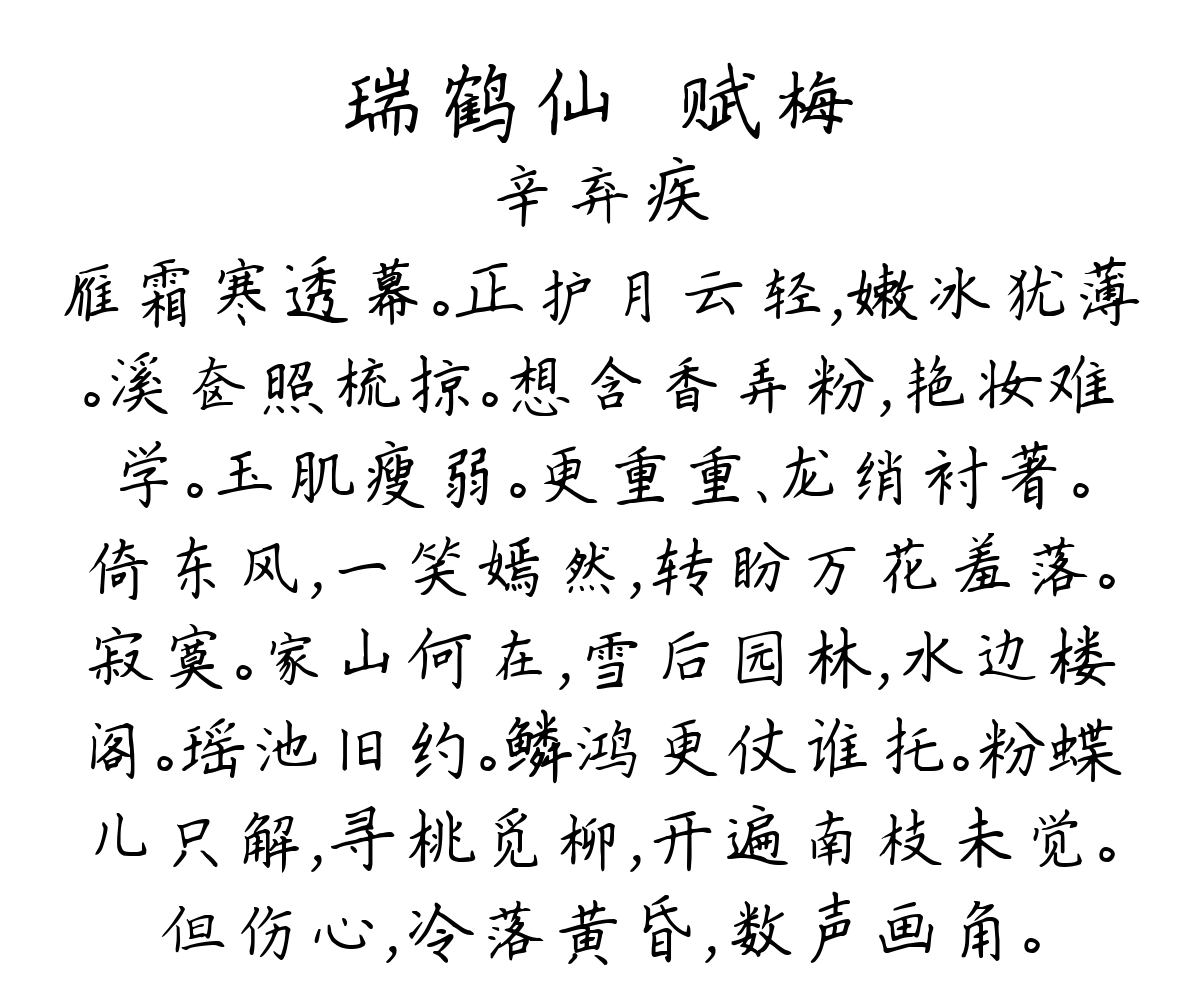 瑞鹤仙 赋梅
辛弃疾
雁霜寒透幕。正护月云轻,嫩冰犹薄
。溪奁照梳掠。想含香弄粉,艳妆难
学。玉肌瘦弱。更重重、龙绡衬著。
倚东风,一笑嫣然,转盼万花羞落。
寂寞。家山何在,雪后园林,水边楼
阁。瑶池旧约。鳞鸿更仗谁托。粉蝶
儿只解,寻桃觅柳,开遍南枝未觉。
但伤心,冷落黄昏,数声画角。